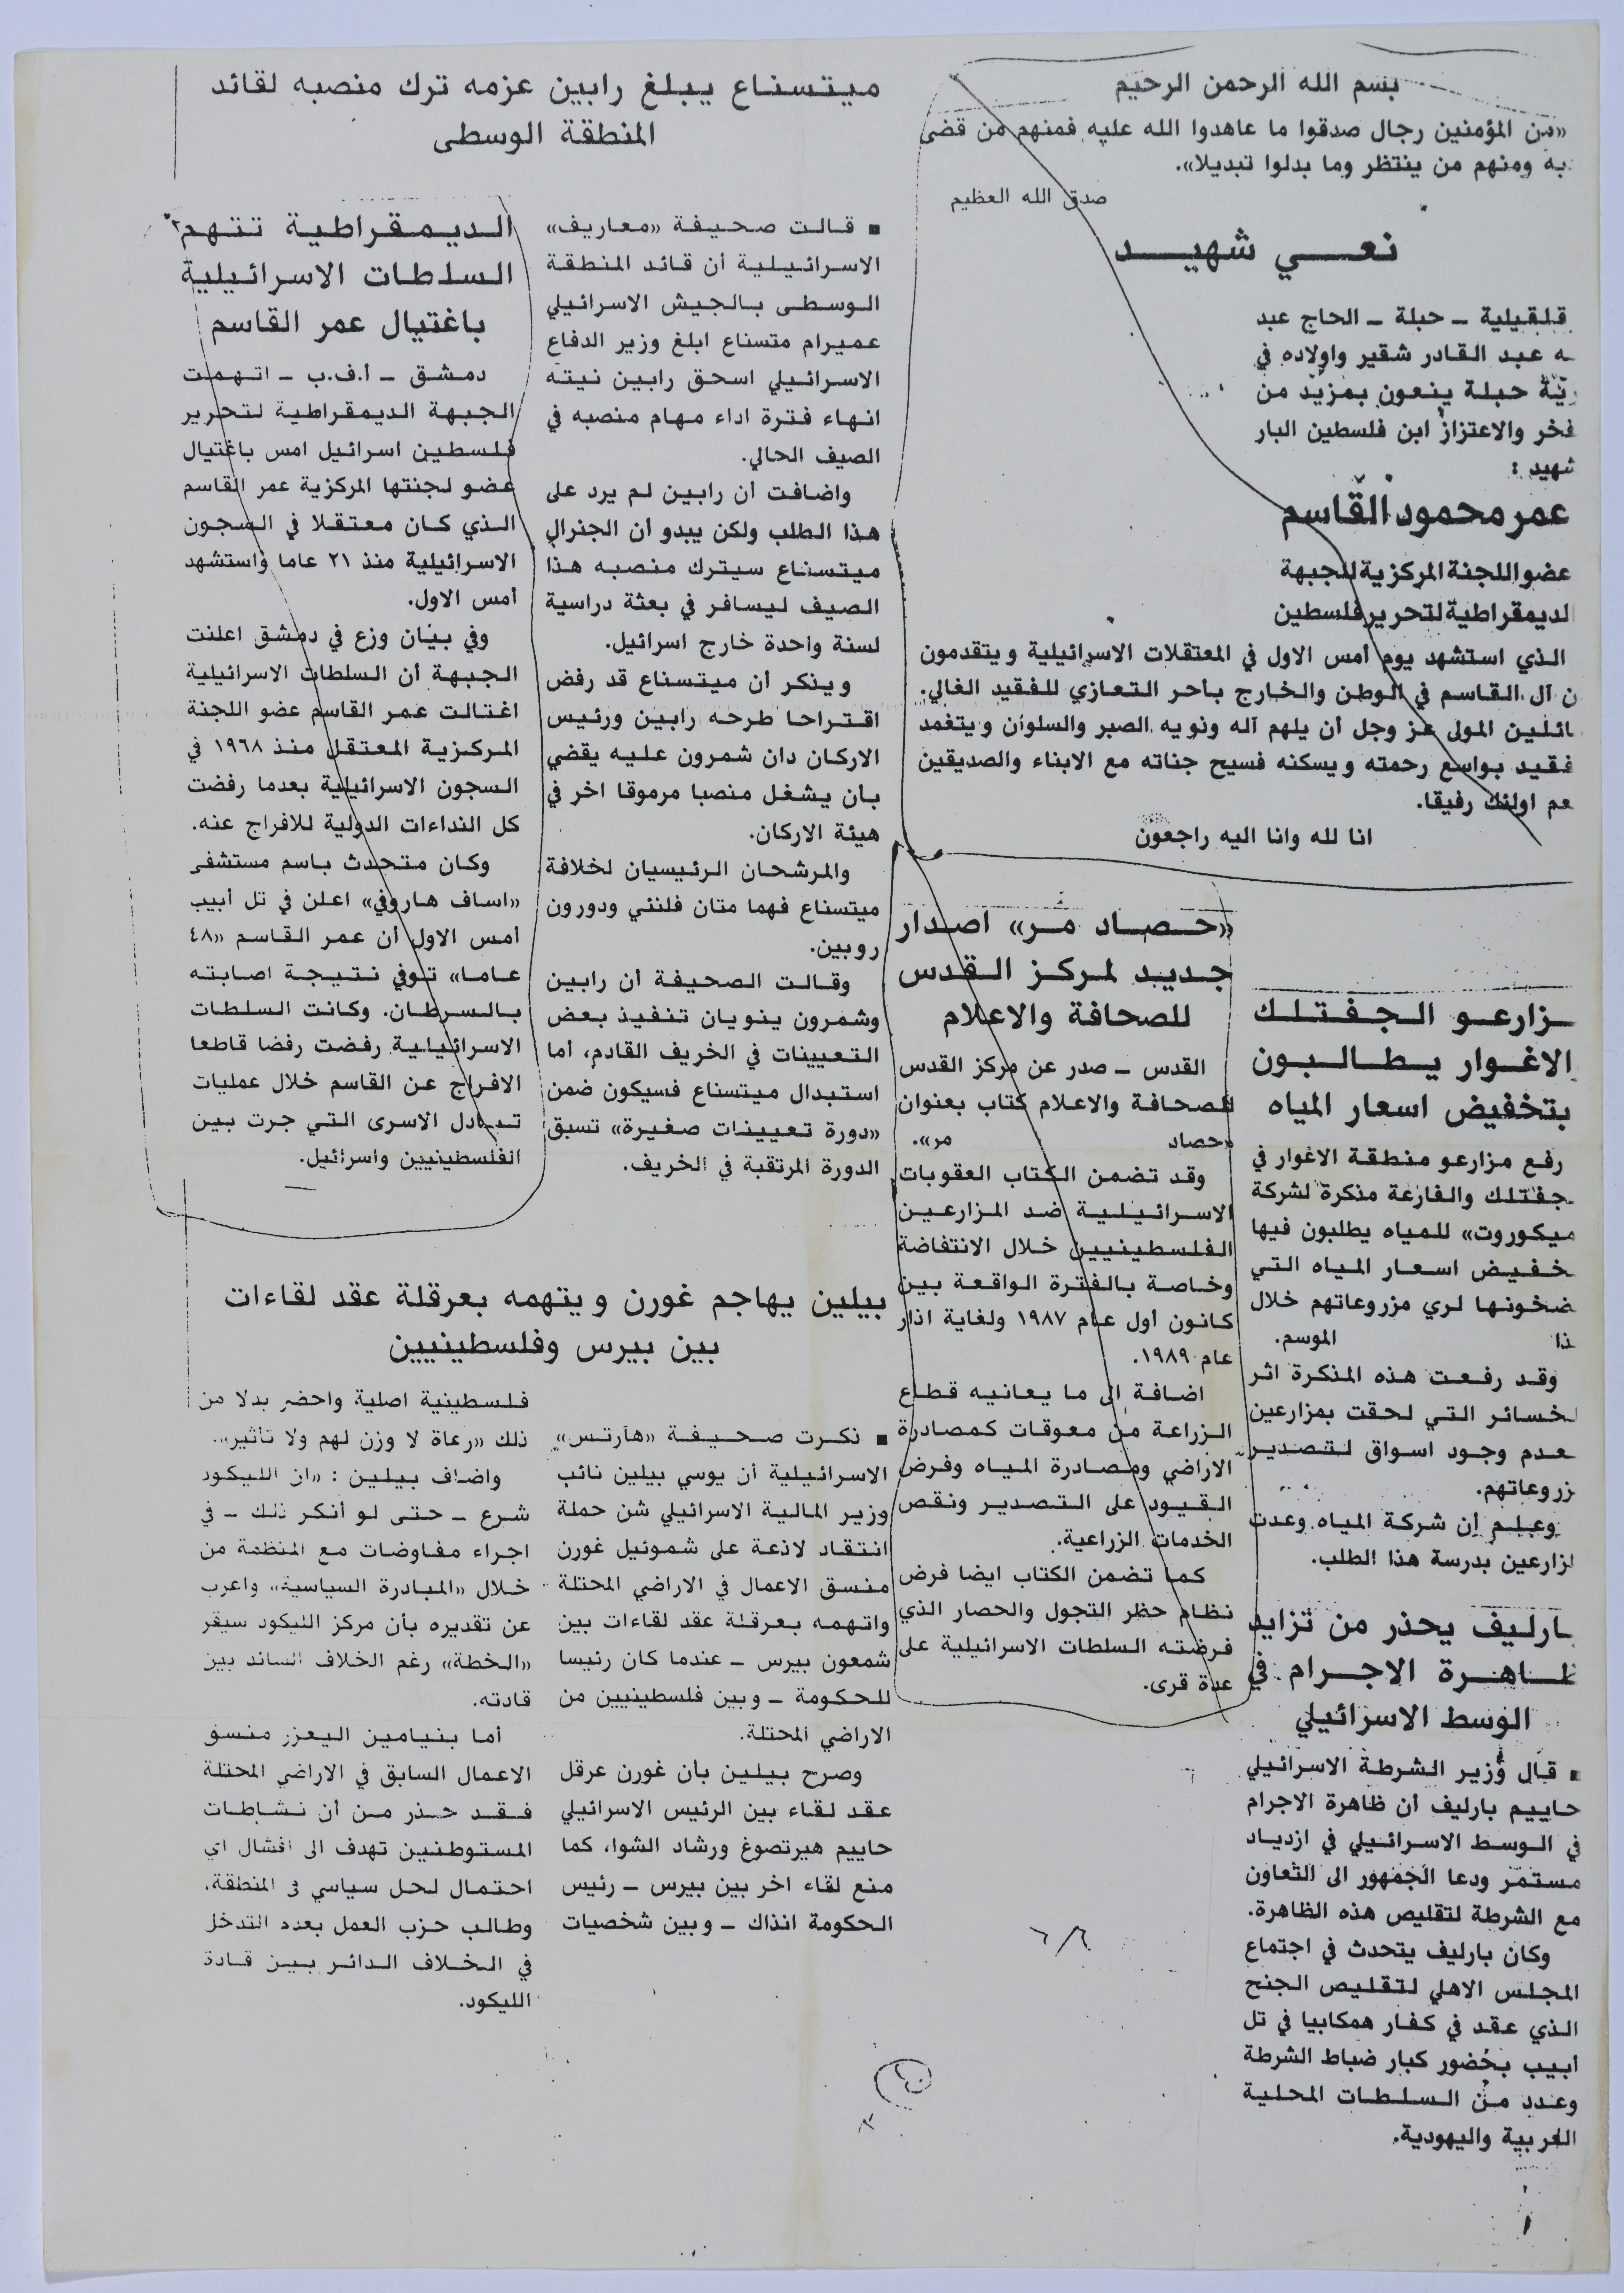 بسم الله الرحمن الرحيم
«من المؤمنين رجال صدقوا ما عاهدوا الله عليه فمنهم من قضى
به ومنهم من ينتظر وما بدلوا تبديلا».
صدق الله العظيم
نعي شهيد
قلقيلية ـ حبلة ـ الحاج عبد
ـه عبد القادر شقير واولاده في
ريّة حبلة ينعون بمزيد من
فخر والاعتزاز ابن فلسطين البار
شهيد :
عمر محمود القاسم
عضو اللجنة المركزية للجبهة
الديمقراطية لتحرير فلسطين
الذي استشهد يوم أمس الاول في المعتقلات الاسرائيلية ويتقدمون
ن آل القاسم في الوطن والخارج بأحر التعازي للفقيد الغالي.
ائلين المولى عز وجل أن يلهم آله وذويه الصبر والسلوان ويتغمد
فقيد بواسع رحمته ويسكنه فسيح جناته مع الابناء والصديقين
عم اولئك رفيقا.
انا لله وانا اليه راجعون
ـزارعو الجفتلك
الاغوار يطالبون
بتخفيض اسعار المياه
رفع مزارعو منطقة الاغوار في
جفتلك والفارعة مذكرة لشركة
ميكوروت» للمياه يطلبون فيها
خفيض اسعار المياه التي
ضخونها لري مزروعاتهم خلال
ذا الموسم.
وقد رفعت هذه المذكرة اثر
لخسائر التي لحقت بمزارعين
عدم وجود اسواق لتصدير
زروعاتهم.
وعلم إن شركة المياه وعدت
لزارعين بدرسة هذا الطلب.
ـارليف يحذر من تزايد
ظاهرة الاجرام في
الوسط الاسرائيلي
■ قال وزير الشرطة الاسرائيلي
حاييم بارليف أن ظاهرة الاجرام
في الوسط الاسرائيلي في ازدياد
مستمر ودعا الجمهور الى التعاون
مع الشرطة لتقليص هذه الظاهرة.
وكان بارليف يتحدث في اجتماع
المجلس الاهلي لتقليص الجنح
الذي عقد في كفار همكابيا في تل
أبيب بحضور كبار ضباط الشرطة
وعدد من السلطات المحلية
العربية واليهودية.
«حصاد مر» اصدار
جديد لمركز القدس
للصحافة والاعلام
القدس ـ صدر عن مركز القدس
للصحافة والاعلام كتاب بعنوان
«حصاد مر».
وقد تضمن الكتاب العقوبات
الاسرائيلية ضد المزارعين
الفلسطينيين خلال الانتفاضة
وخاصة بالفترة الواقعة بين
كانون أول عام ١٩٨٧ ولغاية اذار
عام ١٩٨٩.
اضافة إلى ما يعانيه قطاع
الزراعة من معوقات كمصادرة
الاراضي ومصادرة المياه وفرض
القيود على التصدير ونقص
الخدمات الزراعية.
كما تضمن الكتاب ايضا فرض
نظام حظر التجول والحصار الذي
فرضته السلطات الاسرائيلية على
عدة قرى.
٦/٦
ميتسناع يبلغ رابين عزمه ترك منصبه لقائد
المنطقة الوسطى
■ قالت صحيفة «معاريف»
الاسرائيلية أن قائد المنطقة
الوسطى بالجيش الاسرائيلي
عميرام متسناع ابلغ وزير الدفاع
الاسرائيلي اسحق رابين نيته
انهاء فترة اداء مهام منصبه في
الصيف الحالي.
واضافت أن رابين لم يرد على
هذا الطلب ولكن يبدو أن الجنرال
ميتسناع سيترك منصبه هذا
الصيف ليسافر في بعثة دراسية
لسنة واحدة خارج اسرائيل.
ويذكر أن ميتسناع قد رفض
اقتراحا طرحه رابين ورئيس
الاركان دان شمرون عليه يقضي
بأن يشغل منصبا مرموقا اخر في
هيئة الاركان.
والمرشحان الرئيسيان لخلافة
ميتسناع فهما متان فلنئي ودورون
روبين.
وقالت الصحيفة أن رابين
وشمرون ينويان تنفيذ بعض
التعيينات في الخريف القادم، أما
استبدال ميتسناع فسيكون ضمن
«دورة تعيينات صغيرة» تسبق
الدورة المرتقبة في الخريف.
الديمقراطية تتهم
السلطات الاسرائيلية
باغتيال عمر القاسم
دمشق ـ أ.ف.ب ـ اتهمت
الجبهة الديمقراطية لتحرير
فلسطين اسرائيل امس باغتيال
عضو لجنتها المركزية عمر القاسم
الذي كان معتقلا في السجون
الاسرائيلية منذ ٢١ عاما واستشهد
أمس الاول.
وفي بيان وزع في دمشق اعلنت
الجبهة أن السلطات الاسرائيلية
اغتالت عمر القاسم عضو اللجنة
المركزية المعتقل منذ ١٩٦٨ في
السجون الاسرائيلية بعدما رفضت
كل النداءات الدولية للافراج عنه.
وكان متحدث باسم مستشفى
«اساف هاروفي» اعلن في تل أبيب
أمس الاول أن عمر القاسم «٤٨
عاما» توفي نتيجة اصابته
بالسرطان. وكانت السلطات
الاسرائيلية رفضت رفضا قاطعا
الافراج عن القاسم خلال عمليات
تبادل الاسرى التي جرت بين
الفلسطينيين واسرائيل.
بيلين يهاجم غورن ويتهمه بعرقلة عقد لقاءات
بين بيرس وفلسطينيين
■ ذكرت صحيفة «هآرتس»
الاسرائيلية أن يوسي بيلين نائب
وزير المالية الاسرائيلي شن حملة
انتقاد لاذعة على شموئيل غورن
منسق الاعمال في الاراضي المحتلة
واتهمه بعرقلة عقد لقاءات بين
شمعون بيرس ـ عندما كان رئيسا
للحكومة ـ وبين فلسطينيين من
الاراضي المحتلة.
وصرح بيلين بأن غورن عرقل
عقد لقاء بين الرئيس الاسرائيلي
حاييم هيرتصوغ ورشاد الشوا، كما
منع لقاء اخر بين بيرس ـ رئيس
الحكومة انذاك ـ وبين شخصيات
فلسطينية اصلية واحضر بدلا من
ذلك «رعاة لا وزن لهم ولا تأثير».
واضاف بيلين : «ان الليكود
شرع ـ حتى لو أنكر ذلك ـ في
اجراء مفاوضات مع المنظمة من
خلال «المبادرة السياسية» واعرب
عن تقديره بأن مركز الليكود سيقر
«الخطة» رغم الخلاف السائد بين
قادته.
أما بنيامين اليعزر منسق
الاعمال السابق في الاراضي المحتلة
فقد حذر من أن نشاطات
المستوطنين تهدف الى افشال اي
احتمال لحل سياسي في المنطقة.
وطالب حزب العمل بعدم التدخل
في الخلاف الدائر بين قادة
الليكود.